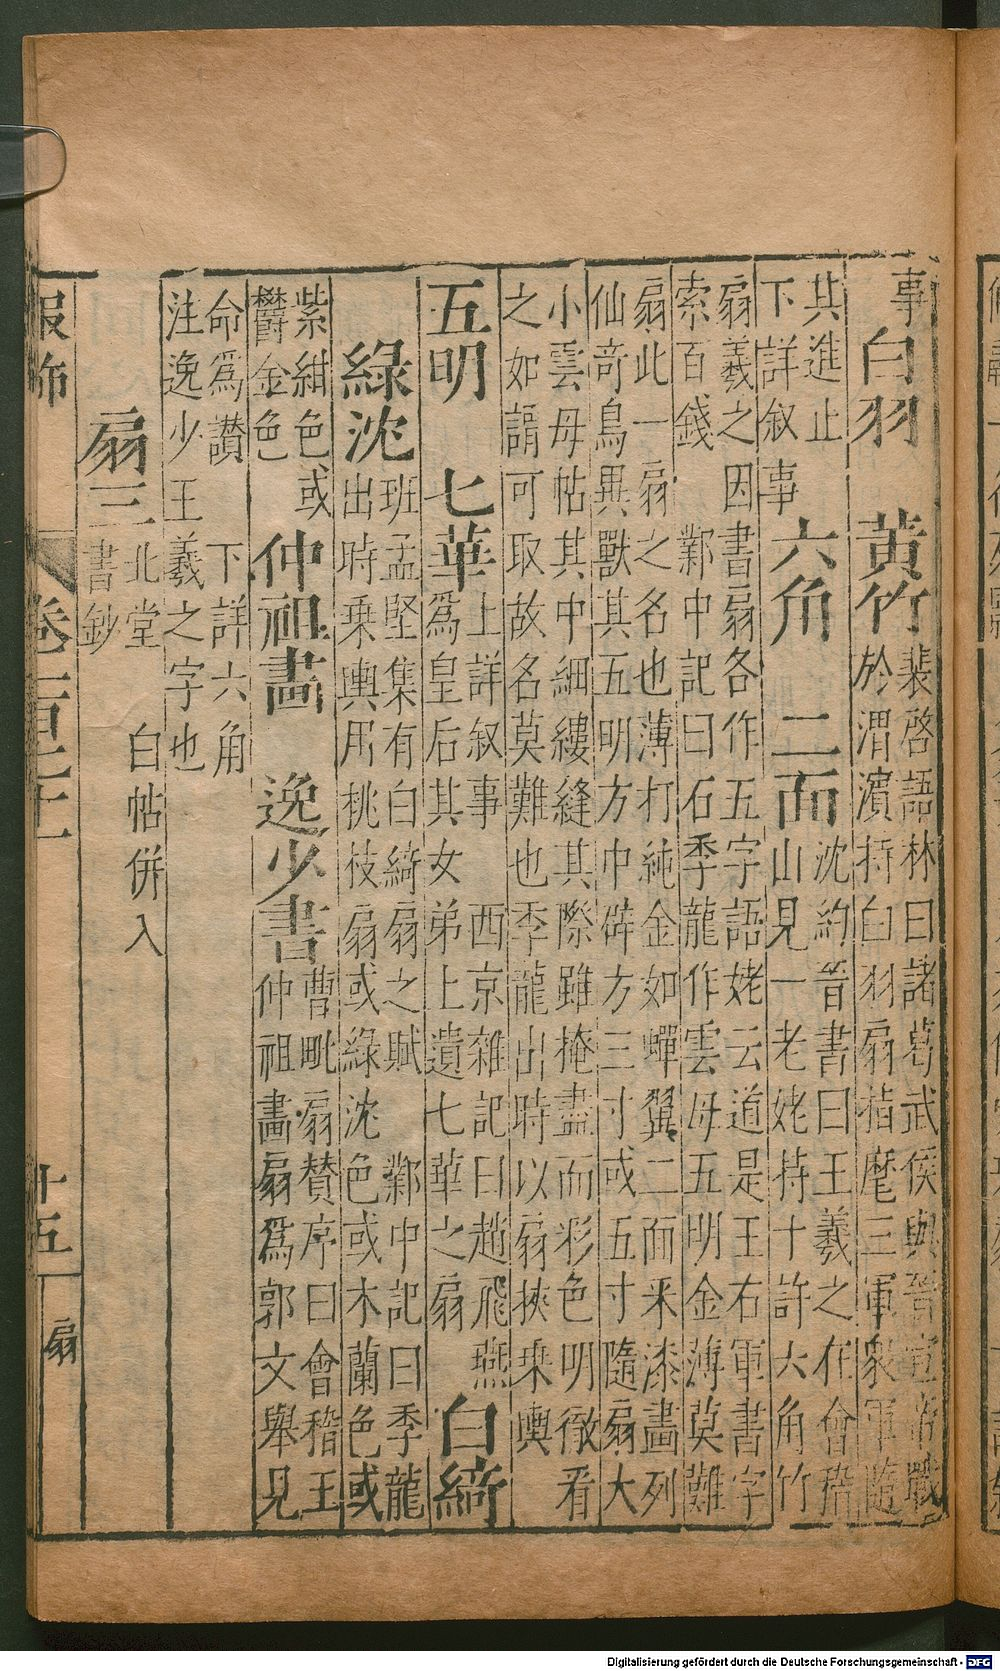 事 白羽 黃竹 裴啓語林曰諸葛武侯與晉宣帝戰
於渭濱持白羽扇指麾三軍衆軍隨
其進止
下詳叙事 六角 二面 沈約晉書曰王羲之在會稽
山見一老姥持十許六角竹
扇羲之因書扇各作五字語姥云道是王右軍書字
索百錢 鄴中記曰石季龍作雲母五明金薄莫難
扇此一扇之名也薄打純金如蟬翼二面釆漆畫列
仙奇鳥異獸其五明方中辟方三寸或五寸隨扇大
小雲母帖其中細縷縫其際雖掩盡而彩色明徹看
之如謂可取故名莫難也季龍出時以扇挾乗輿
五明 七華 上詳叙事 西京雜記曰趙飛燕
爲皇后其女弟上遺七華之扇 白綺
綠沈 班孟堅集有白綺扇之賦 鄴中記曰季龍
出時乗輿用桃枝扇或綠沈色或木蘭色或
紫紺色或
鬱金色 仲祖畫 逸少書 曹毗扇賛序曰會稽王
仲祖畫扇爲郭文舉見
命爲讃 下詳六角
注逸少王羲之字也
扇三 北堂書鈔 白帖併入
服飾 卷一百七十 十五 扇
Digitalisierung gefördert durch die Deutsche Forschungsgemeinschaft - DFG